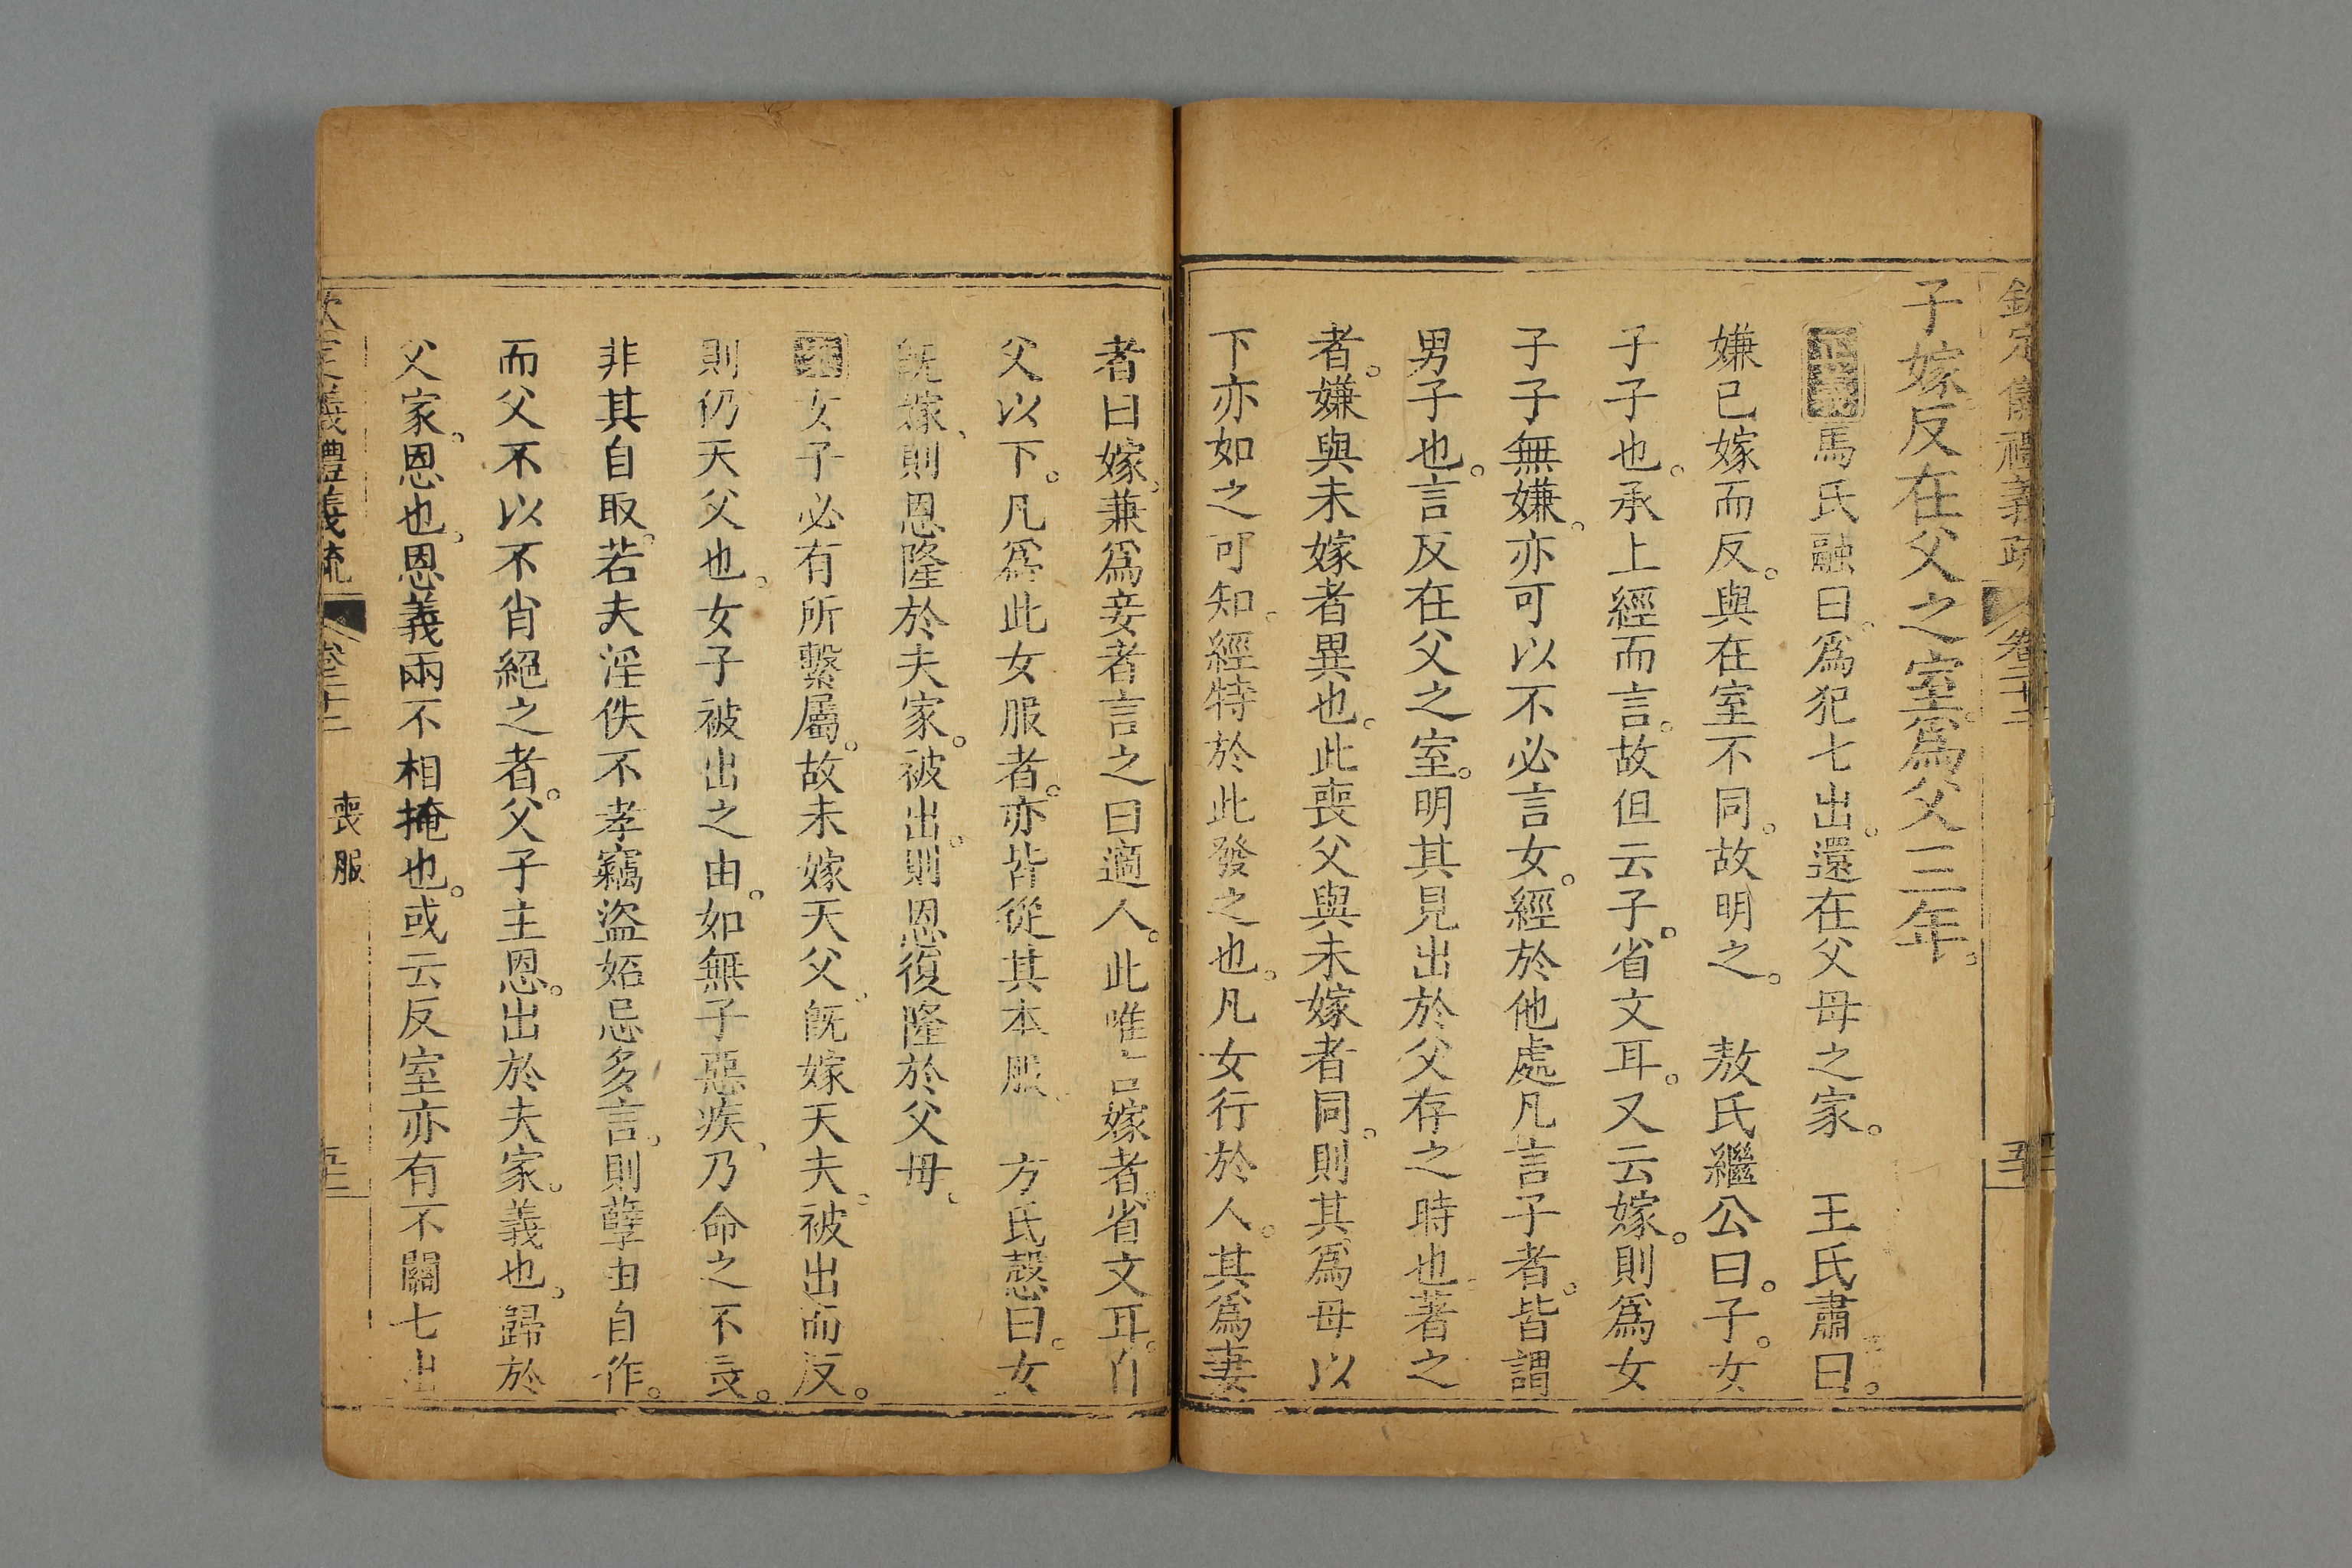 欽定儀禮義疏 卷二十二
子嫁反在父之室。爲父三年。
正義馬氏融曰。爲犯七出。還在父母之家。 王氏肅曰。
嫌已嫁而反。與在室不同。故明之。 敖氏繼公曰。子。女
子子也。承上經而言。故但云子。省文耳。又云嫁。則爲女
子子無嫌。亦可以不必言女。經於他處凡言子者。皆謂
男子也。言反在父之室。明其見出於父存之時也。著之
者。嫌與未嫁者異也。此喪父與未嫁者同。則其爲母以
下亦如之可知。經特於此發之也。凡女行於人。其爲妻
者曰嫁。兼爲妾者言之曰適人。此唯言嫁者。省文耳。自
父以下。凡爲此女服者。亦皆從其本服。 方氏慤曰。女
既嫁、則恩隆於夫家。被出。則恩復隆於父母。
案女子必有所繫屬。故未嫁天父。既嫁天夫。被出而反。
則仍天父也。女子被出之由。如無子惡疾、乃命之不辰。
非其自取。若夫淫佚不孝竊盜妬忌多言。則孽由自作。
而父不以不肖絕之者。父子主恩。出於夫家。義也。歸於
父家。恩也。恩義兩不相掩也。或云反室亦有不關七出
欽定儀禮義疏 卷二十二 喪服